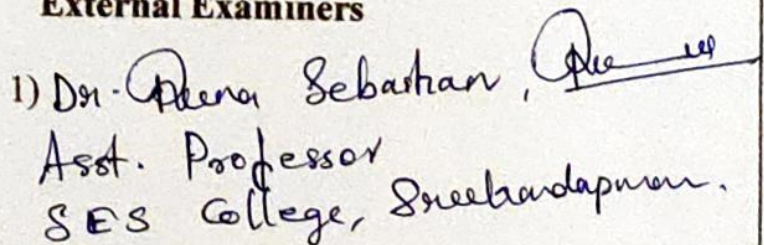 External Examiners
1) Dr. Sebastian,
Asst. Professor
SES College, Sreekandapuram.